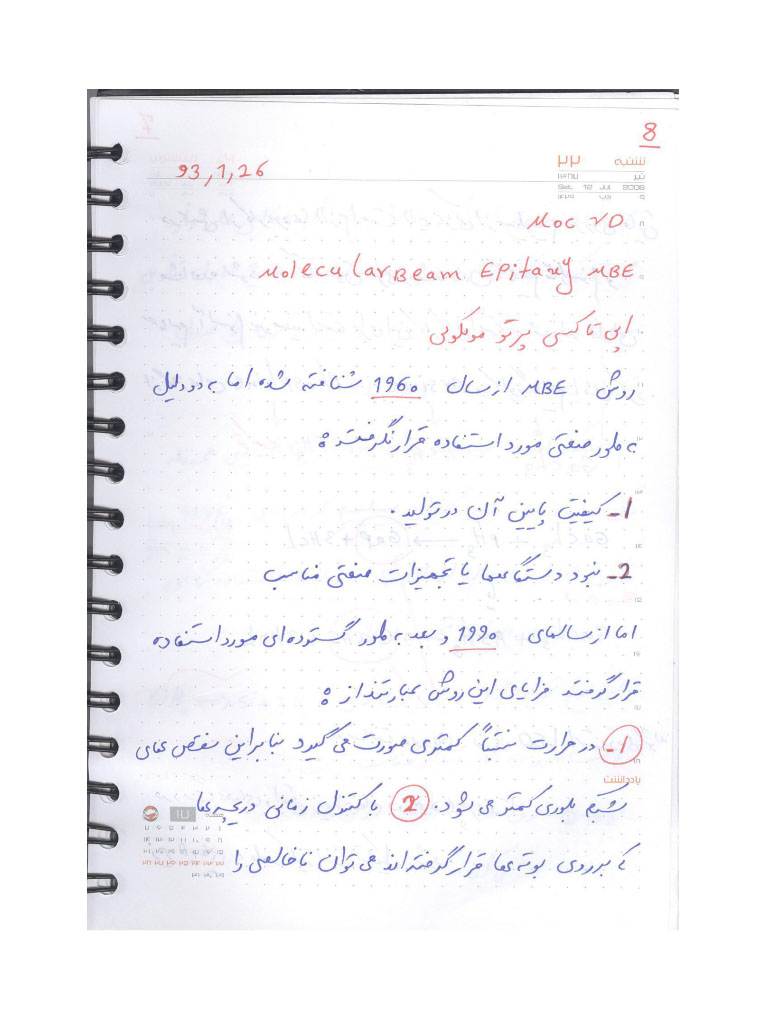 8
شنبه ۲۲
تیر ۱۳۸۷
Sat. 12 Jul 2008
93,1,26
MOC VD
Molecular Beam EPitaxy MBE
اپی تاکسی پرتو مولکولی
روش MBE از سال 1960 شناخته شده اما به دو دلیل
به طور صنعتی مورد استفاده قرار نگرفتند:
1- کیفیت پایین آن در تولید.
2- نبود دستگاهها یا تجهیزات صنعتی مناسب
اما از سالهای 1990 و بعد به طور گسترده ای مورد استفاده
قرار گرفتند مزایای این روش عبارتند از:
1- در حرارت نسبتاً کمتری صورت می گیرد بنابراین نقص های
یادداشت
شبکه بلوری کمتر می شود. 2 با کنترل زمانی دریچه ها
که برروی بوته ها قرار گرفته اند می توان ناخالصی را